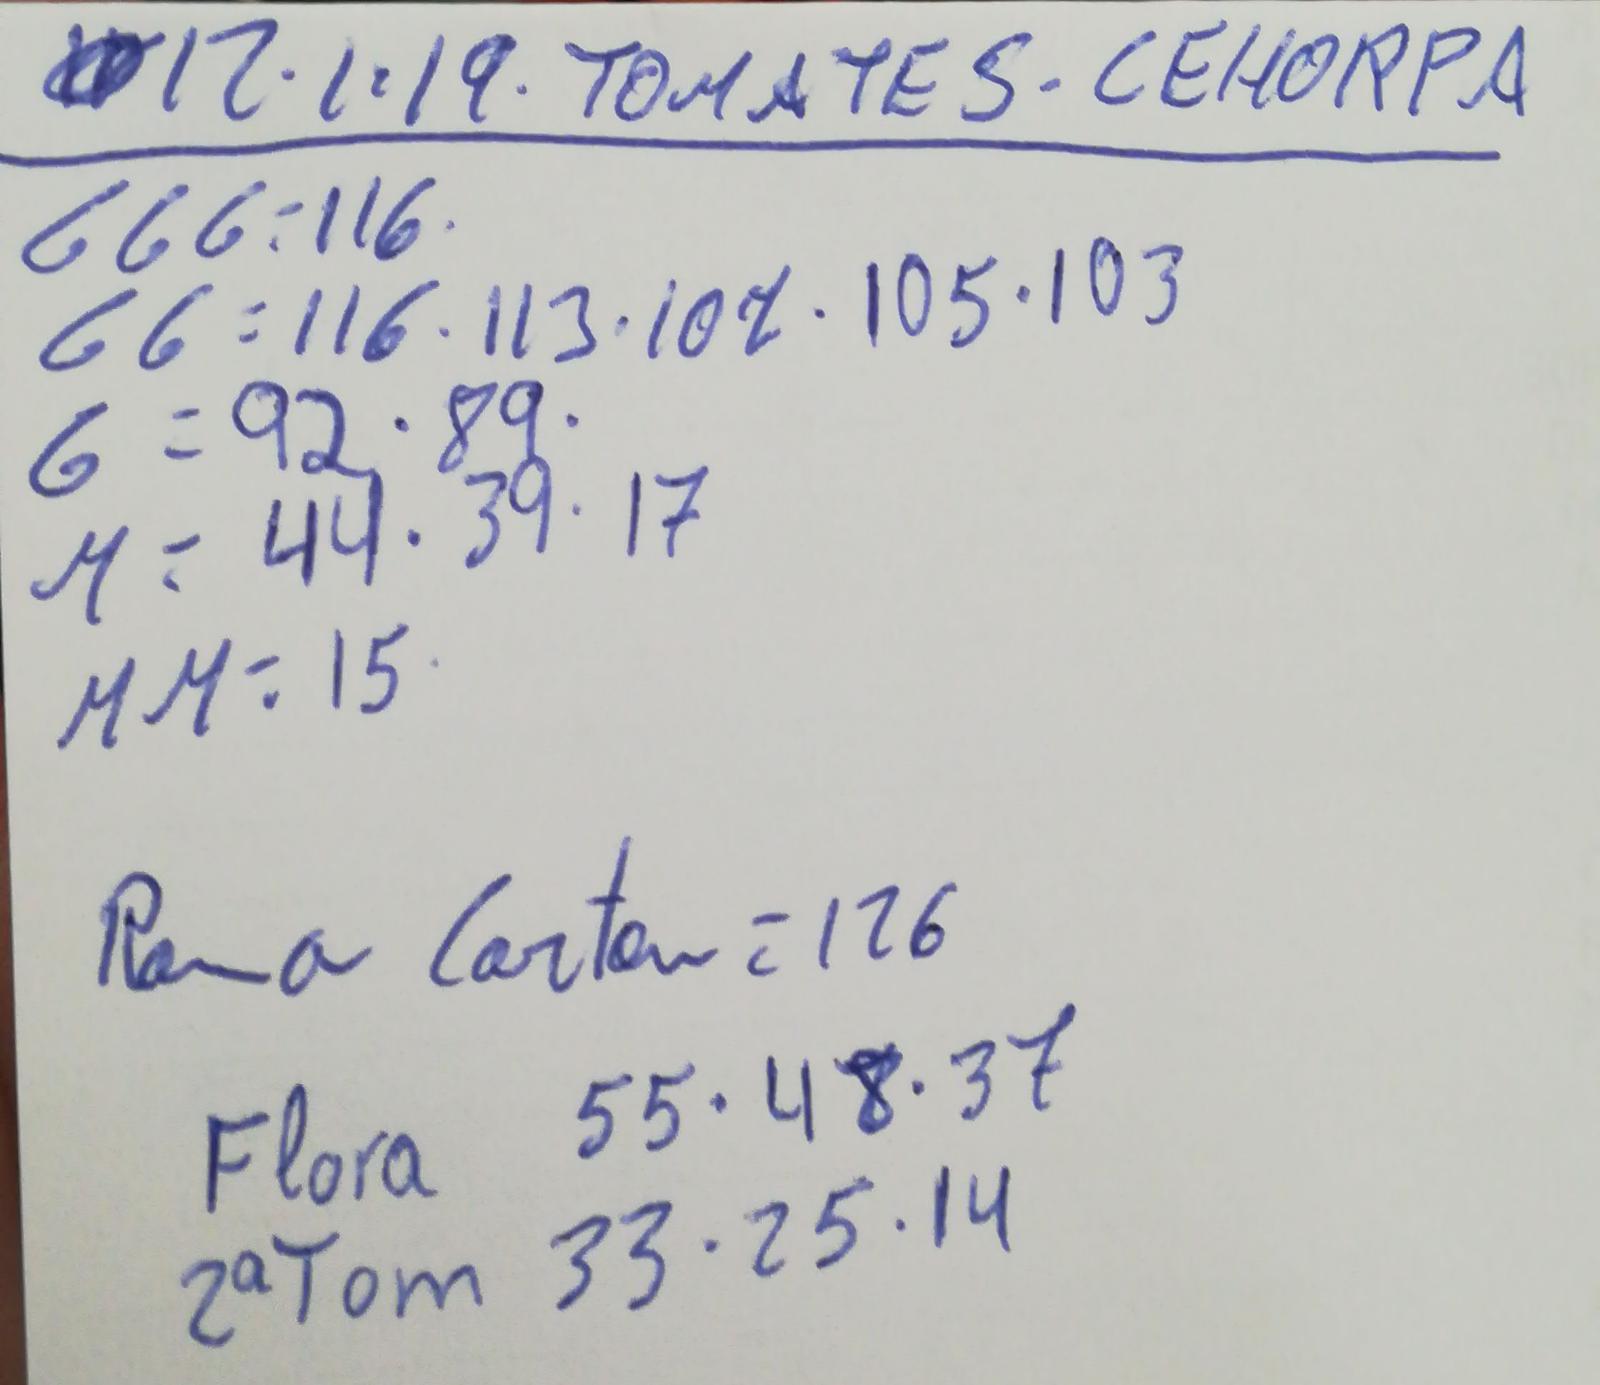 12.1.19. TOMATES. CEHORPA
GGG=116.
GG=116.113.107.105.103
G=92.89.
M=44.39.17
MM=15.
Rama Carton=126
Flora 55.48.37
2ªTom 33.25.14